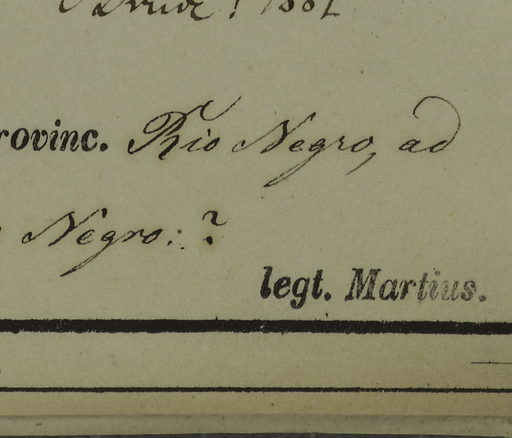 rovinc. Rio Negro, ad
Negro: ?
legt. Martius.